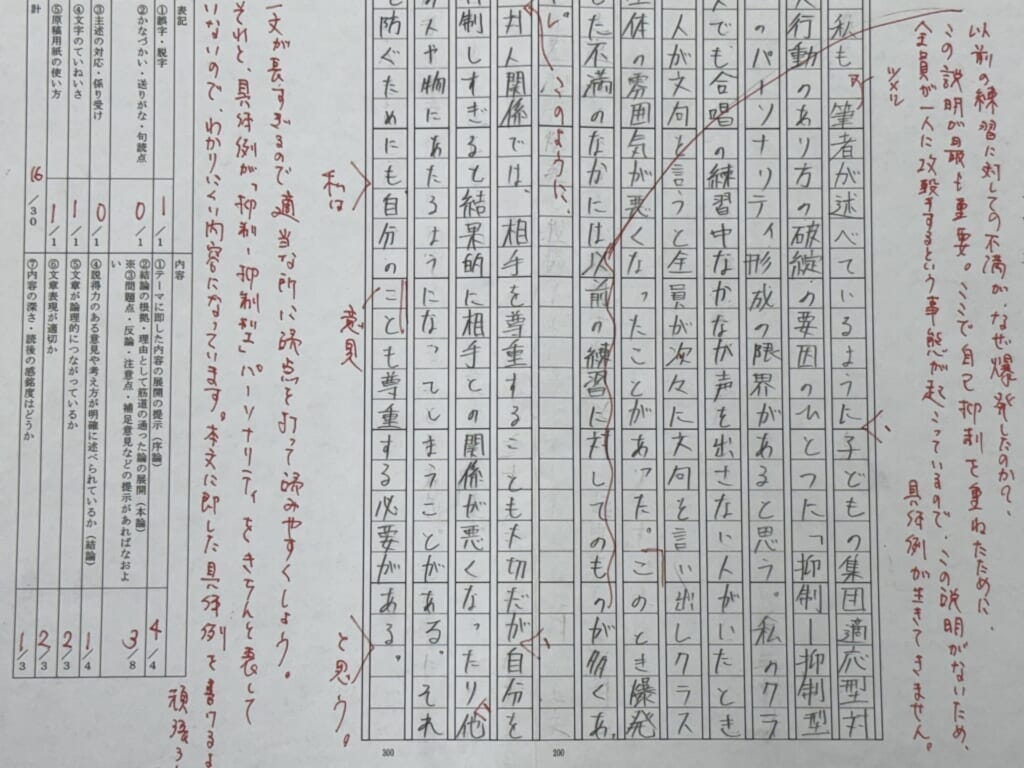 以前の練習に対しての不満が、なぜ爆発したのか?、
この説明が最も重要。ここで自己抑制を重ねたために、
全員が一人に攻撃するという事態が起こっているので、この説明がないため、
具体例が生きてきません。
私も筆者が述べているように子どもの集団適応型対
人行動のあり方の破綻の要因のひとつに「抑制ー抑制型
のパーソナリティ形成の限界があると思う。私のクラ
スでも合唱の練習中なかなか声を出さない人がいたとき
人が文句を言うと全員が次々に文句を言い出しクラス
全体の雰囲気が悪くなったことがあった。このとき爆発
した不満のなかには以前の練習に対してのものが多くあ
このように、
対人関係では、相手を尊重することも大切だが自分を
抑制しすぎると結果的に相手との関係が悪くなったり他
の人や物にあたるようになってしまうことがある。それ
を防ぐためにも自分のことも尊重する必要がある。
私は
意見
と思う。
一文が長すぎるので適当な所に読点を打って読みやすくしよう。
それと、具体例が「抑制ー抑制型」パーソナリティをきちんと表して
いないので、わかりにくい内容になっています。本文に即した具体例を書けるよ
頑張ろ
表記
①誤字・脱字
②かなづかい・送りがな・句読点
③主述の対応・係り受け
④文字のていねいさ
⑤原稿用紙の使い方
1/1
0/1
0/1
1/1
1/1
計
16/30
内容
①テーマに即した内容の展開の提示(序論)
②結論の根拠・理由として筋道の通った論の展開(本論)
※③問題点・反論・注意点・補足意見などの提示があればなおよ
い
④説得力のある意見や考え方が明確に述べられているか(結論)
⑤文章が論理的につながっているか
⑥文章表現が適切か
⑦内容の深さ・読後の感銘度はどうか
4/4
3/8
1/4
2/3
2/3
1/3
200
300